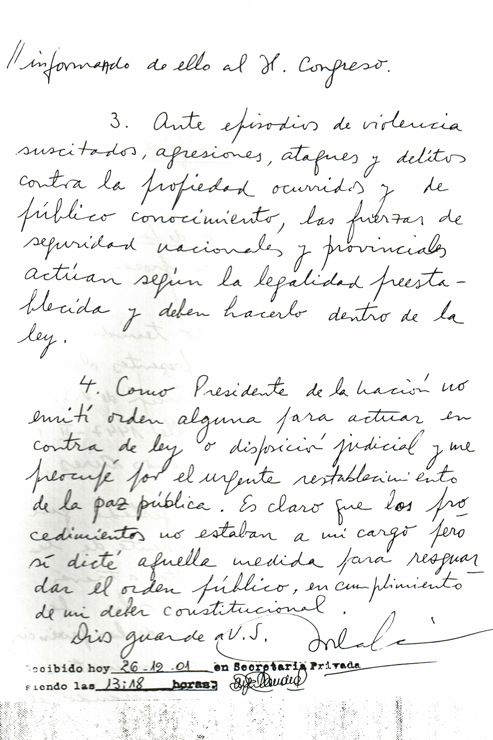 // informando de ello al H. Congreso.
3. Ante episodios de violencia
suscitados, agresiones, ataques y delitos
contra la propiedad ocurridos y de
público conocimiento, las fuerzas de
seguridad nacionales y provinciales
actúan según la legalidad preesta-
blecida y deben hacerlo dentro de la
ley.
4. Como Presidente de la Nación no
emití orden alguna para actuar en
contra de ley o disposición judicial y me
preocupé por el urgente restablecimiento
de la paz pública. Es claro que los pro
cedimientos no estaban a mi cargo pero
sí dicté aquella medida para resguar_
dar el orden público, en cumplimiento
de mi deber constitucional.
Dios guarde a V.S.
ecibido hoy 26-12-01 en Secretaría Privada
siendo las 13:18 horas;